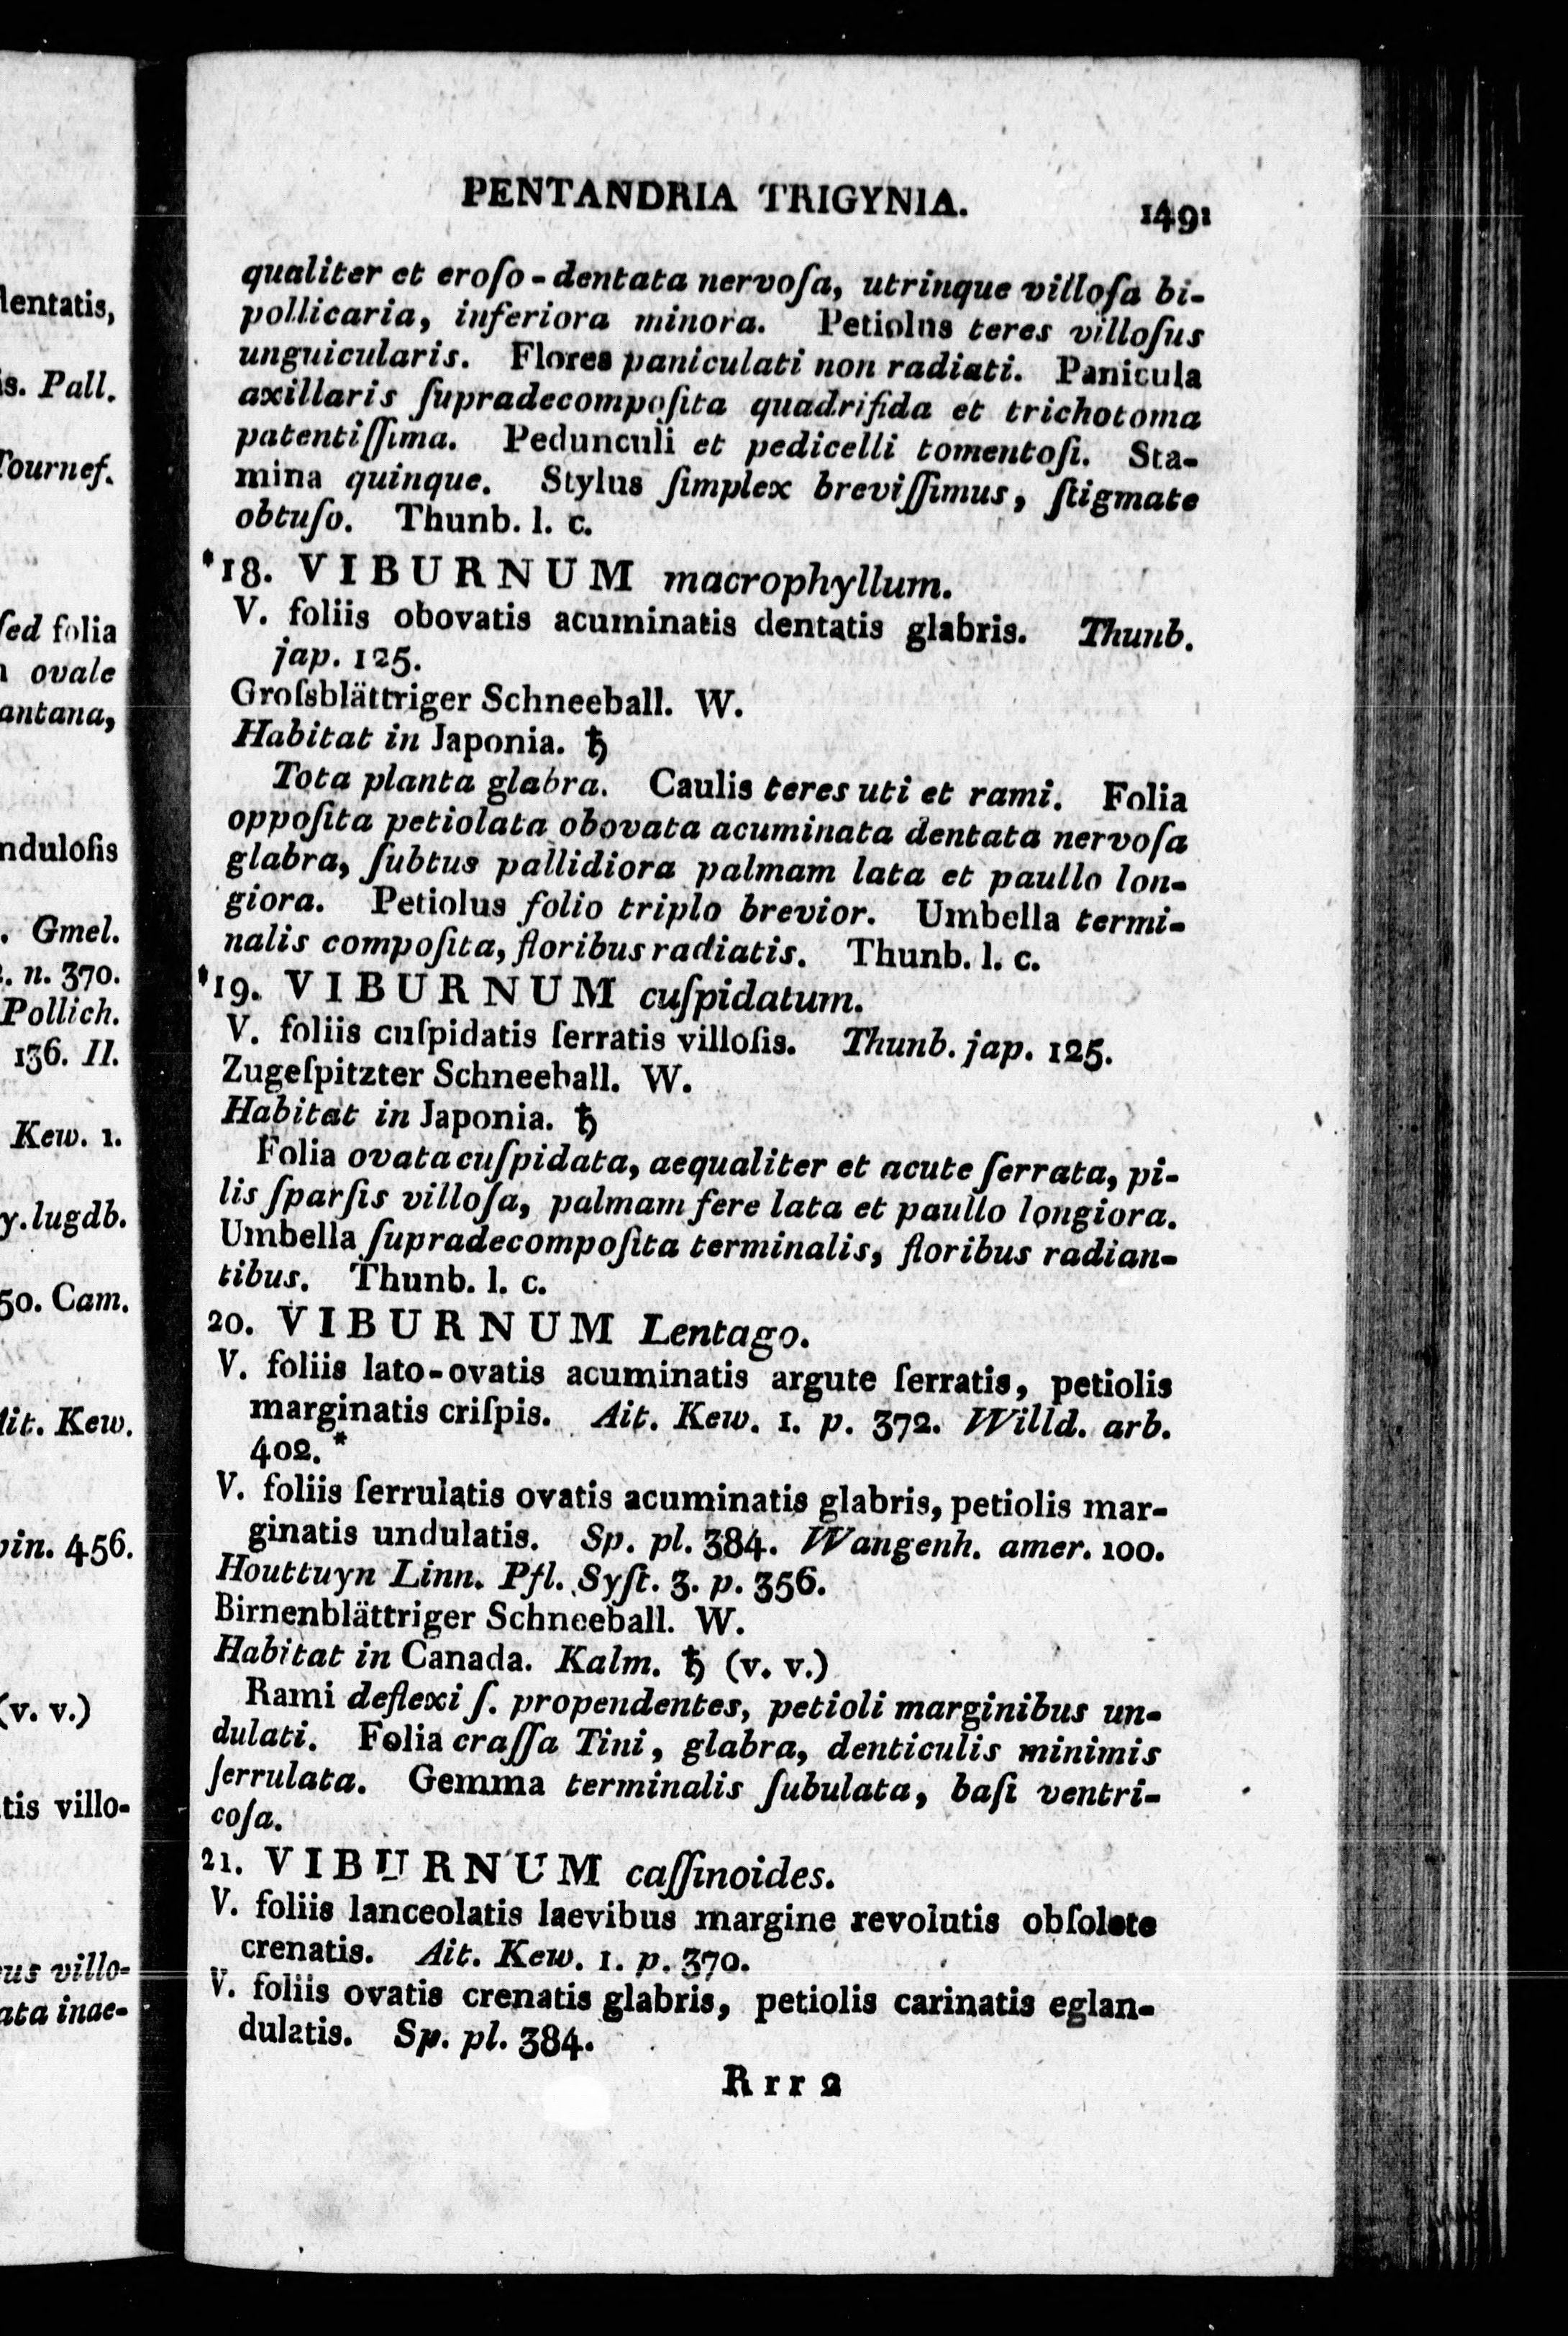 PENTANDRIA TRIGYNIA. 1491
qualiter et eroſo-dentata nervoſa, utrinque villoſa bi-
pollicaria, inferiora minora. Petiolus teres villoſus
unguicularis. Flores paniculati non radiati. Panicula
axillaris ſupradecompoſita quadrifida et trichotoma
patentiſſima. Pedunculi et pedicelli tomentoſi. Sta-
mina quinque. Stylus ſimplex breviſſimus, ſtigmate
obtuſo. Thunb. l. c.
*18. VIBURNUM macrophyllum.
V. foliis obovatis acuminatis dentatis glabris. Thunb.
jap. 125.
Groſsblättriger Schneeball. W.
Habitat in Japonia. ♄
Tota planta glabra. Caulis teres uti et rami. Folia
oppoſita petiolata obovata acuminata dentata nervoſa
glabra, ſubtus pallidiora palmam lata et paullo lon-
giora. Petiolus folio triplo brevior. Umbella termi-
nalis compoſita, floribus radiatis. Thunb. l. c.
*19. VIBURNUM cuſpidatum.
V. foliis cuſpidatis ſerratis villoſis. Thunb. jap. 125.
Zugeſpitzter Schneeball. W.
Habitat in Japonia. ♄
Folia ovata cuſpidata, aequaliter et acute ſerrata, pi-
lis ſparſis villoſa, palmam fere lata et paullo longiora.
Umbella ſupradecompoſita terminalis, floribus radian-
tibus. Thunb. l. c.
20. VIBURNUM Lentago.
V. foliis lato-ovatis acuminatis argute ſerratis, petiolis
marginatis criſpis. Ait. Kew. 1. p. 372. Willd. arb.
402. *
V. foliis ſerrulatis ovatis acuminatis glabris, petiolis mar-
ginatis undulatis. Sp. pl. 384. Wangenh. amer. 100.
Houttuyn Linn. Pfl. Syſt. 3. p. 356.
Birnenblättriger Schneeball. W.
Habitat in Canada. Kalm. ♄ (v. v.)
Rami deflexi ſ. propendentes, petioli marginibus un-
dulati. Folia craſſa Tini, glabra, denticulis minimis
ſerrulata. Gemma terminalis ſubulata, baſi ventri-
coſa.
21. VIBURNUM caſſinoides.
V. foliis lanceolatis laevibus margine revolutis obſolete
crenatis. Ait. Kew. 1. p. 370.
V. foliis ovatis crenatis glabris, petiolis carinatis eglan-
dulatis. Sp. pl. 384.
Rrr 2